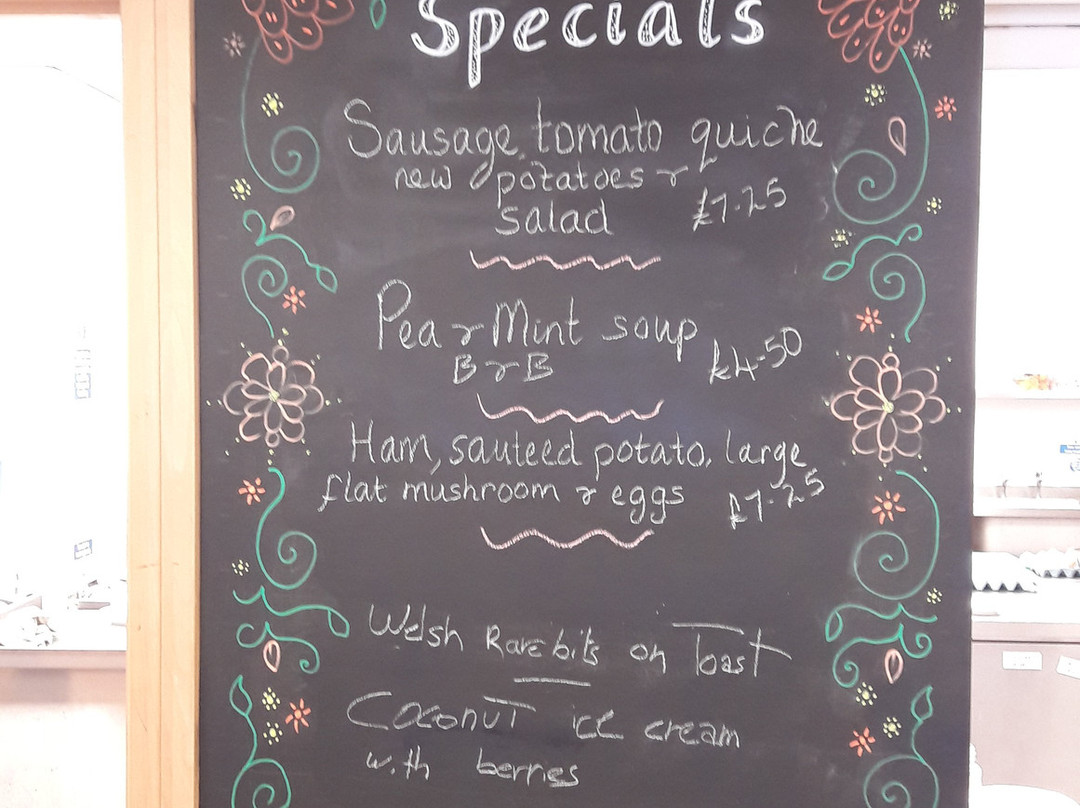 Specials
Sausage, tomato quiche
new potatoes &
salad £7.25
Pea & Mint soup
B & B £4.50
Ham, sauteed potato, large
flat mushroom & eggs £7.25
Welsh Rarebits on Toast
Coconut ice cream
with berries